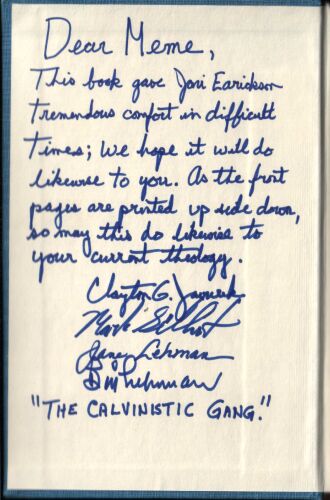 Dear Meme,
This book gave Joni Earickson
tremendous comfort in difficult
times; we hope it will do
likewise to you. As the front
pages are printed up side down,
so may this do likewise to
your current theology.
Clayton G.
Mark
Janey Lehman
Bill Lehman
"THE CALVINISTIC GANG."